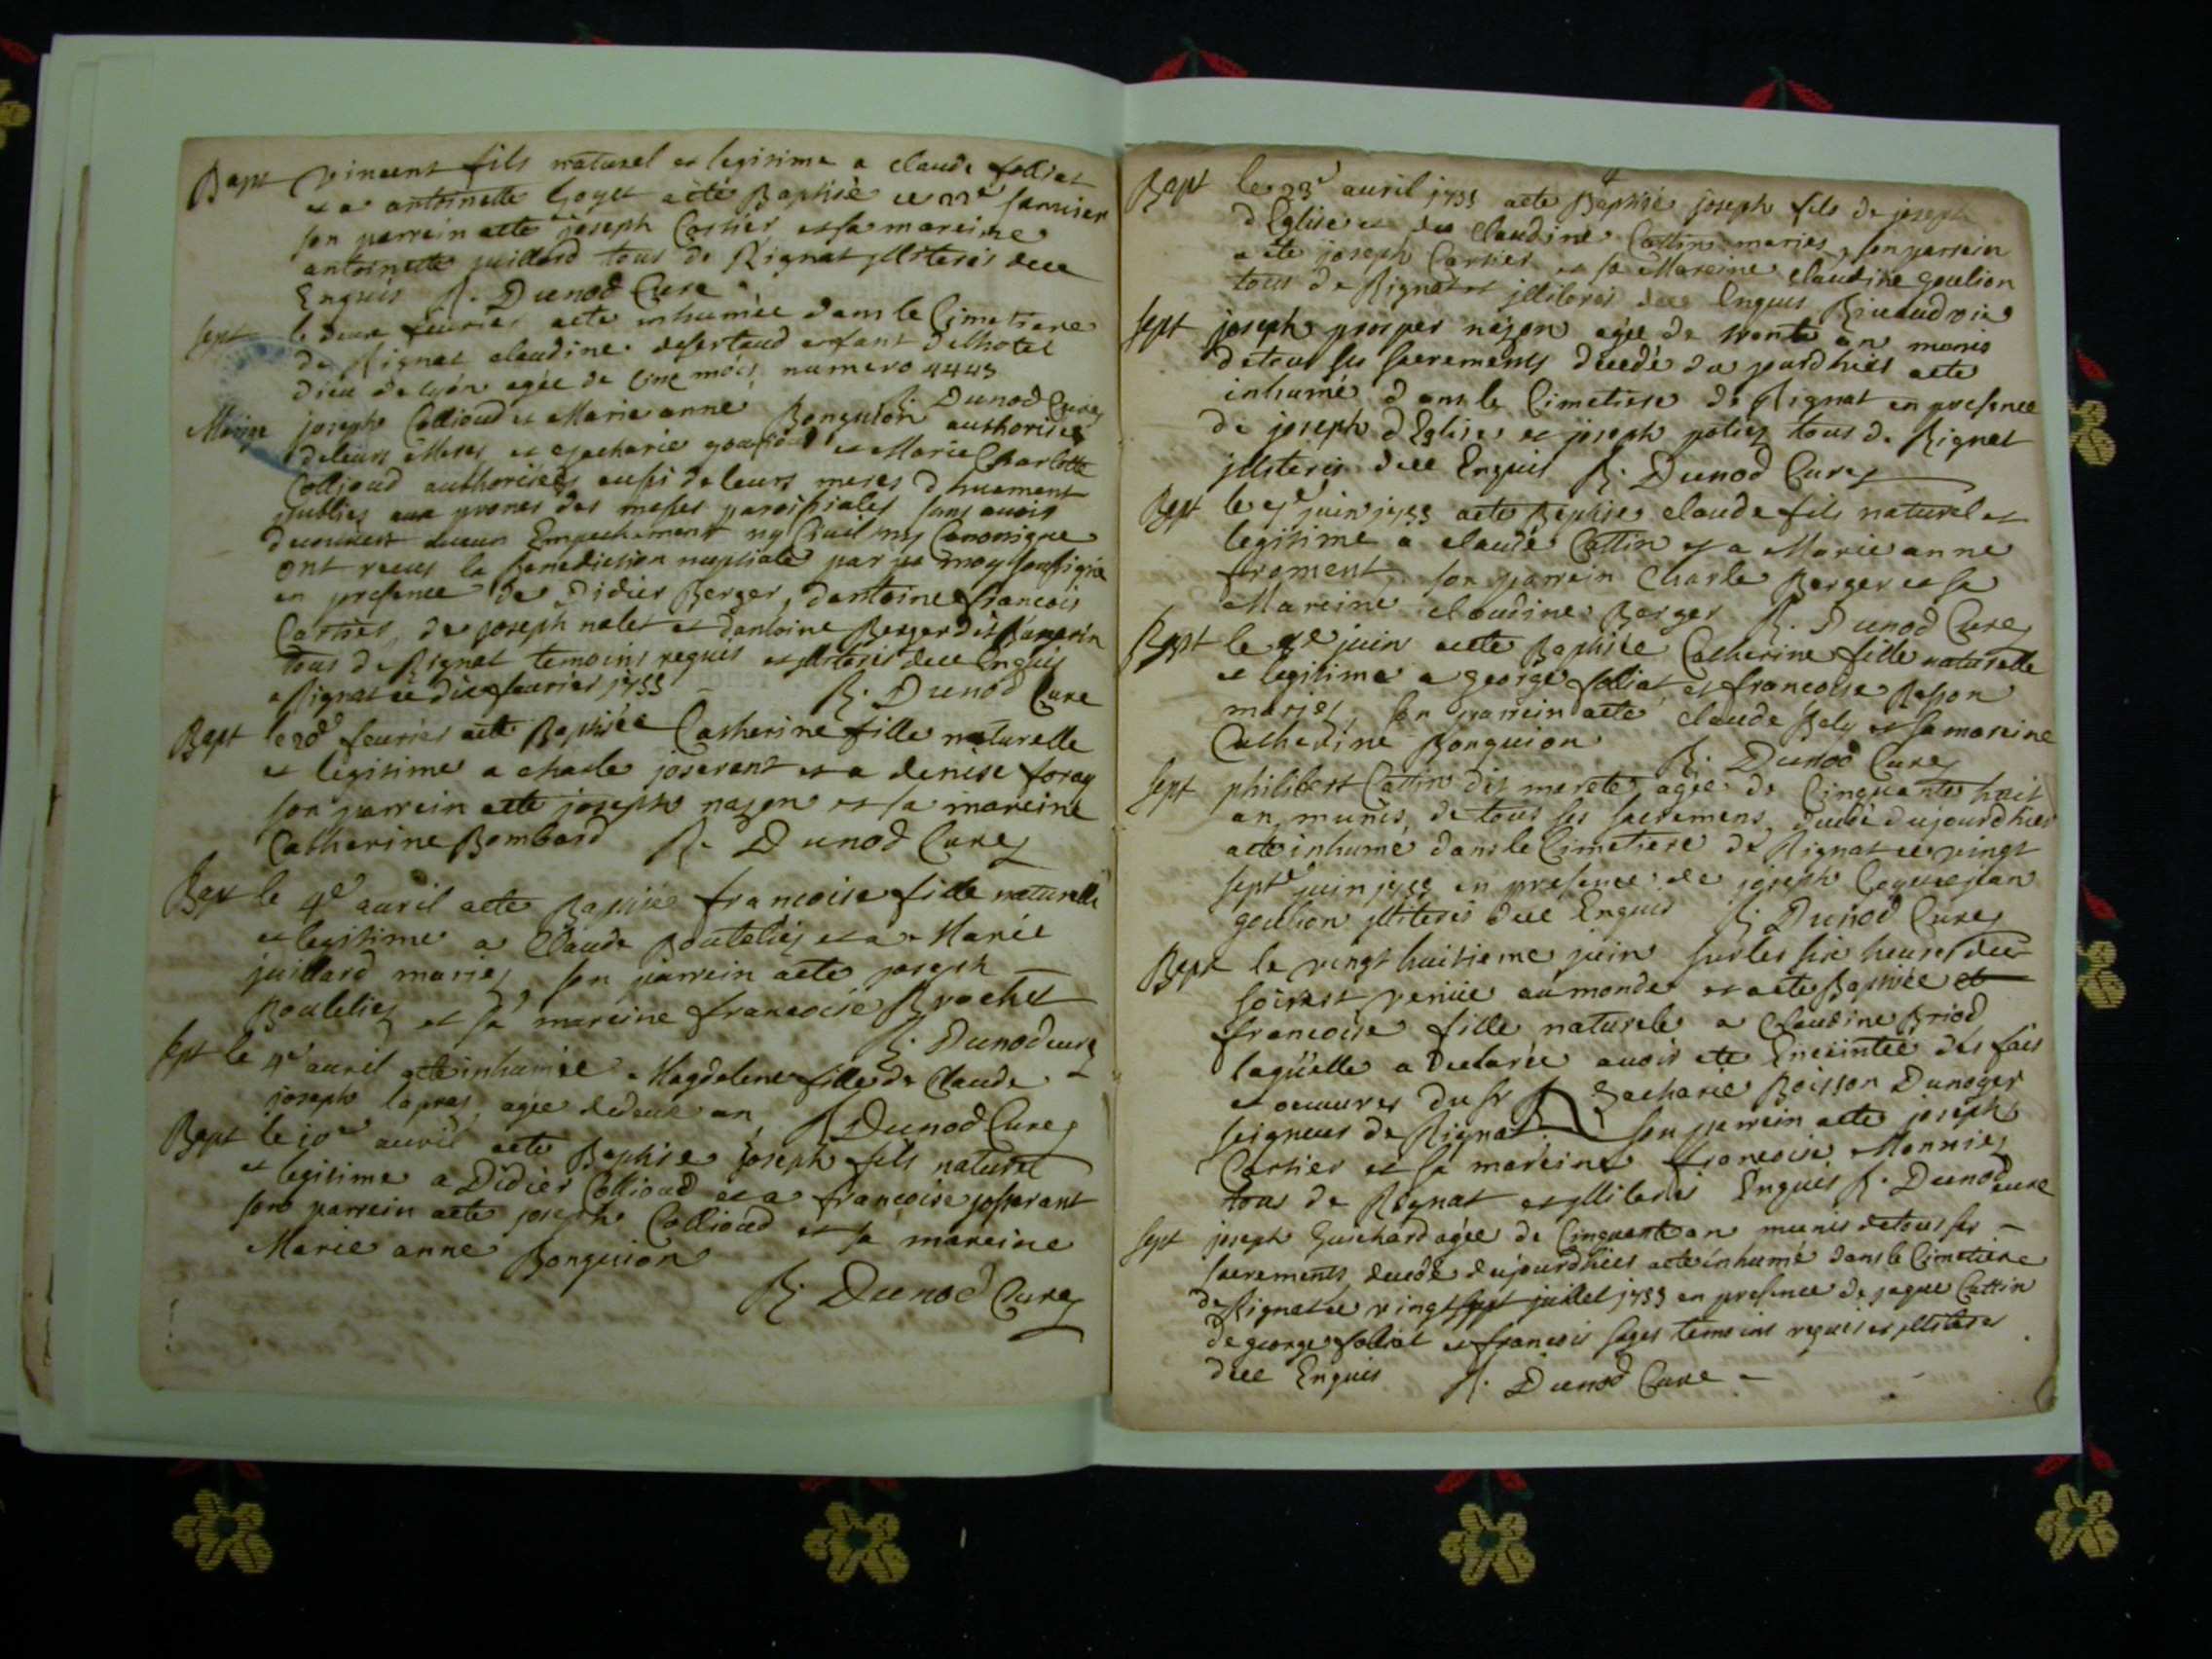 Bapt vincent fils naturel et legitime a claude folliat
et a antoinette Goyet aété Baptisé ce 22e janvier
son parrein aeté joseph Cartier et sa mareine
antoinette juillard tous de Rignat illiterés dece
Enquis R. Dunod Cure
sept le deux feurier aeté inhumée dans le Cimetiere
de Rignat claudine desertaud enfant delhotel
dieu de lyon agée de cinc mois numero 4443
R. Dunod Cure
Mariage joseph Collioud et Marie anne Bonguion authorisés
deleurs Meres et Zacharie et Marie Charlotte
Collioud authorisées aussi de leurs meres dhuement
publies aux prones des messes paroissiales sans avoir
decouvert aucun Empechement ny Civil ny Canonique
ont receus la benediction nuptiale par moy soussigné
en presence de Didier Berger, dantoine francois
Cartier, de joseph nalet et dantoine Berger dit
tous de Rignat temoins requis et illiterés dece Enquis
a Rignat ce dix feurier 1755 R. Dunod Cure
Bapt le 20e feurier aeté Baptisée Catherine fille naturelle
et legitime a charle joserant et a denise foray
son parrein aeté joseph nazon et sa mareine
Catherine Bombard R. Dunod Cure
Bapt le 4e auril aeté Baptisée francoise fille naturelle
et legitime a Claude Bouteliez et a Marie
juillard mariez, son parrein aeté joseph
Bouteliez et sa mareine francoise Brochet
R. Dunod cure
sept le 4e auril aeté inhumée Magdelene fille de Claude
joseph lapras, agée dedeux an R. Dunod Cure
Bapt le 10e auril aeté Baptisé joseph fils naturel
et legitime a Didier Collioud et a francoise josserant
son parrein aeté joseph Collioud et sa mareine
Marie anne Bonguion
R. Dunod Cure
Bapt le 23e auril 1755 aeté Baptisé joseph fils de joseph
dEglise et de Claudine Cattin mariés, son parrein
a eté joseph Cartier et sa Mareine claudine goulion
tous de Rignat et illiterés dece Enquis
sept joseph prosper nazon agée de trente an munis
detous ses sacrements decedé du jourdhier aeté
inhumé dans le Cimetiere de Rignat en presence
de joseph dEglise et joseph potiez tous de Rignat
illiterés dece Enquis R. Dunod Cure
Bapt le juin 1755 aeté Baptisé claude fils naturel et
legitime a claude Cattin et a Marie anne
froment, son parrein Charle Berger et sa
Mareine claudine Berger R. Dunod Cure
Bapt le juin aeté Baptisée Catherine fille naturelle
et legitime a george folliat et francoise
mariez, son parrein aeté claude Bely et sa mareine
Catherine Bonguion R. Dunod Cure
sept philibert Cattin dit agée de Cinquante huit
an, munis, de tous ses sacremens, decedé dujourdhier
aeté inhumé dans le Cimetiere de Rignat ce vingt
septe juin 1755 en presence de joseph
goulion illiterés dece Enquis R. Dunod Cure
Bapt le vingt huitieme juin sur les six heures du
soir est venüe au monde et aeté Baptisée et
francoise fille naturele a Claudine Briod
laqüelle a declarée avoir eté Enceintée des fais
et oeuures du sr Zacharie Boisson Dunoyer
seigneur de Rignat son parrein aeté joseph
Cartier et sa mareine francoise Monniez
tous de Rignat et illiterés Enquis R. Dunod cure
sept joseph Guichard agée de Cinquante an munis detous ses
sacrements decedé dujourdhier aeté inhumé dans le Cimetiere
de Rignat ce vingt sept juillet 1755 en presence de jaque Cattin
de george folliat et francois sages temoins requis et illiterés
dece Enquis R. Dunod Cure